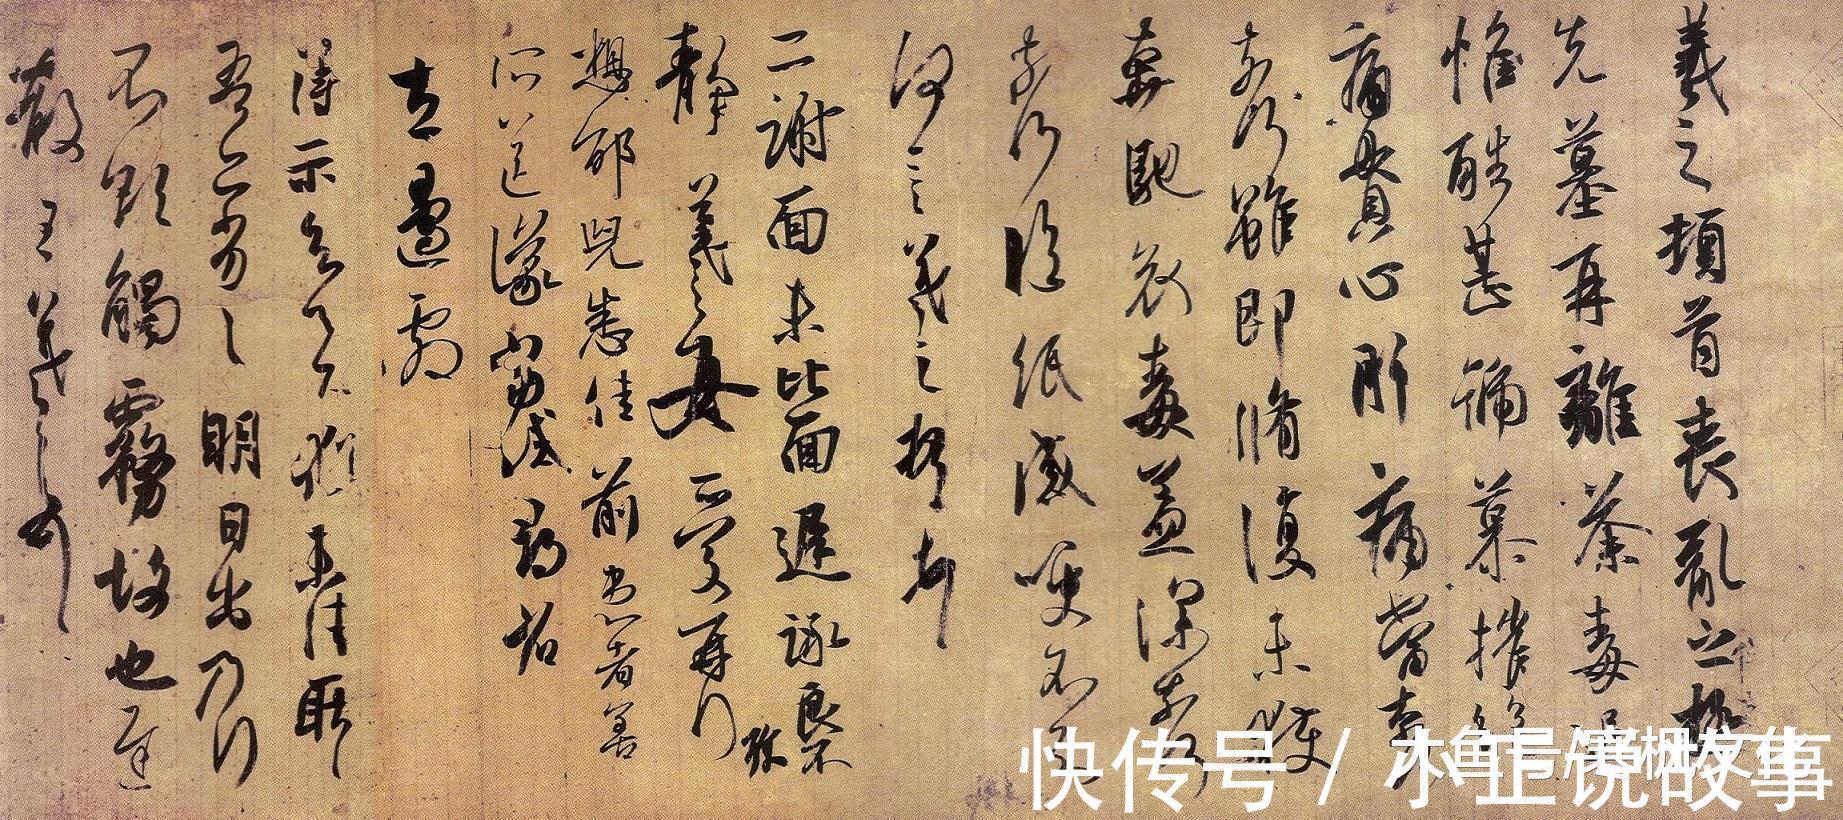 羲之頓首喪亂之極
先墓再離荼毒追
惟酷甚號慕摧絕
痛貫心肝痛當奈何
奈何雖即脩復未獲
奔馳哀毒益深奈何
奈何臨紙感哽不知
何言羲之頓首頓首
二謝面未比面遲詠良不
靜羲之女愛再拜
珍
想邰兒悉佳前患者善
所送議當試尋省
左邊劇
得示知足下猶未佳耿耿
吾亦劣劣明日出乃行
不欲觸霧故也遲
散王羲之頓首
快传号 /
故事